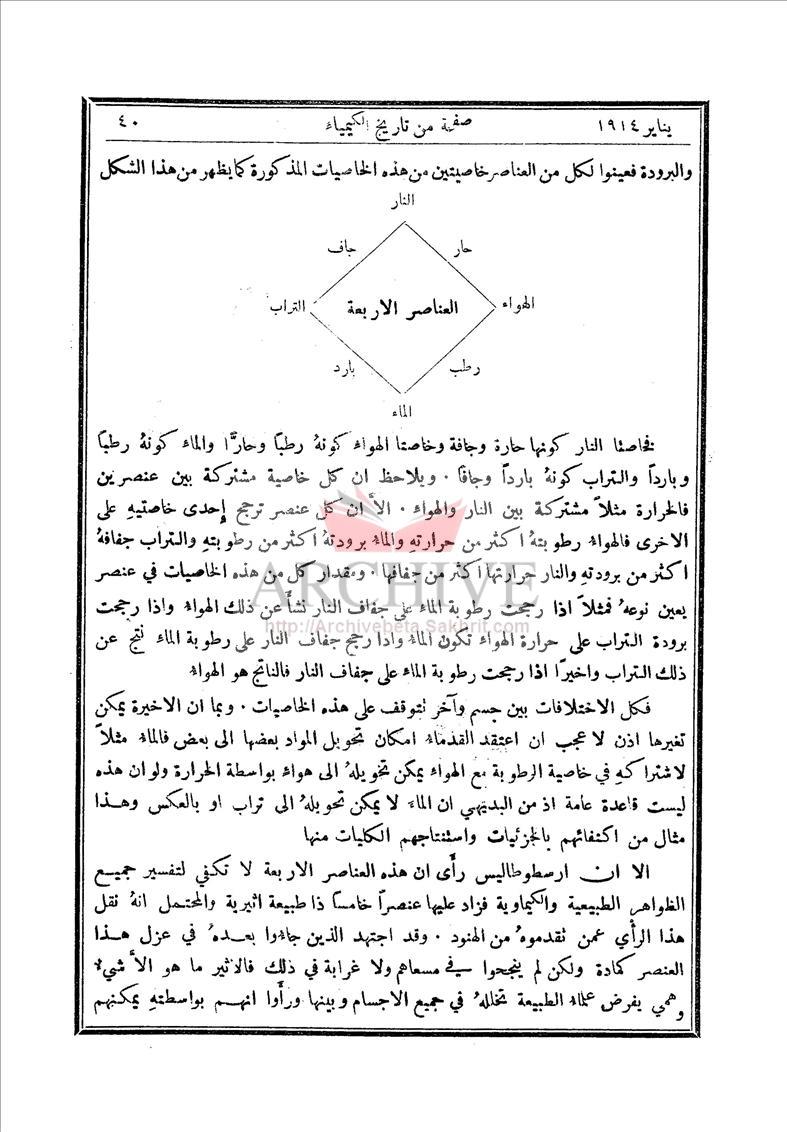 يناير ١٩١٤ صفحة من تاريخ الكيمياء ٤٠
والبرودة فعينوا لكل من العناصر خاصيتين من هذه الخاصيات المذكورة كما يظهر من هذا الشكل
النار
حار جاف
الهواء العناصر الاربعة التراب
رطب بارد
الماء
فخاصتا النار كونها حارة وجافة وخاصتا الهواء كونهُ رطبًا وحارًّا والماء كونهُ رطبًا
وباردًا والتراب كونهُ باردًا وجافًا . ويلاحظ ان كل خاصية مشتركة بين عنصرين
فالحرارة مثلاً مشتركة بين النار والهواء . الاَّ ان كل عنصر ترجح إحدى خاصتيهِ على
الاخرى فالهواء رطوبتهُ اكثر من حرارتهِ والماء برودتهُ اكثر من رطوبتهِ والتراب جفافهُ
اكثر من برودتهِ والنار حرارتها اكثر من جفافها . ومقدار كل من هذه الخاصيات في عنصر
يعين نوعهُ فمثلاً اذا رجحت رطوبة الماء على جفاف النار نشأ عن ذلك الهواء واذا رجحت
برودة التراب على حرارة الهواء تكون الماء واذا رجح جفاف النار على رطوبة الماء نتج عن
ذلك التراب واخيرًا اذا رجحت رطوبة الماء على جفاف النار فالناتج هو الهواء
فكل الاختلافات بين جسم وآخر تتوقف على هذه الخاصيات . وبما ان الاخيرة يمكن
تغيرها اذن لا عجب ان اعتقد القدماء امكان تحويل المواد بعضها الى بعض فالماء مثلاً
لاشتراكهِ في خاصية الرطوبة مع الهواء يمكن تحويلهُ الى هواء بواسطة الحرارة ولو ان هذه
ليست قاعدة عامة اذ من البديهي ان الماء لا يمكن تحويلهُ الى تراب او بالعكس وهذا
مثال من اكتفائهم بالجزئيات واستنتاجهم الكليات منها
الا ان ارسطوطاليس رأى ان هذه العناصر الاربعة لا تكفي لتفسير جميع
الظواهر الطبيعية والكيماوية فزاد عليها عنصرًا خامسًا ذا طبيعة اثيرية والمحتمل انهُ نقل
هذا الرأي عمن تقدموهُ من الهنود . وقد اجتهد الذين جاءوا بعدهُ في عزل هذا
العنصر كمادة ولكن لم ينجحوا في مسعاهم ولا غرابة في ذلك فالاثير ما هو الاَّ شيء
وهمي يفرض علماء الطبيعة تخللهُ في جميع الاجسام وبينها ورأوا انهم بواسطتهِ يمكنهم
ARCHIVE
http://Archivebeta.Sakhrit.com